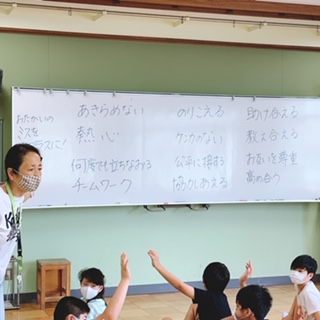 おたがいの
ミスを
プラスに!
あきらめない
熱い心
何度でも立ちなおる
チームワーク
のりこえる
ケンカのない
公平に接する
協力しあえる
助け合える
教え合える
お互いを尊重
高め合う